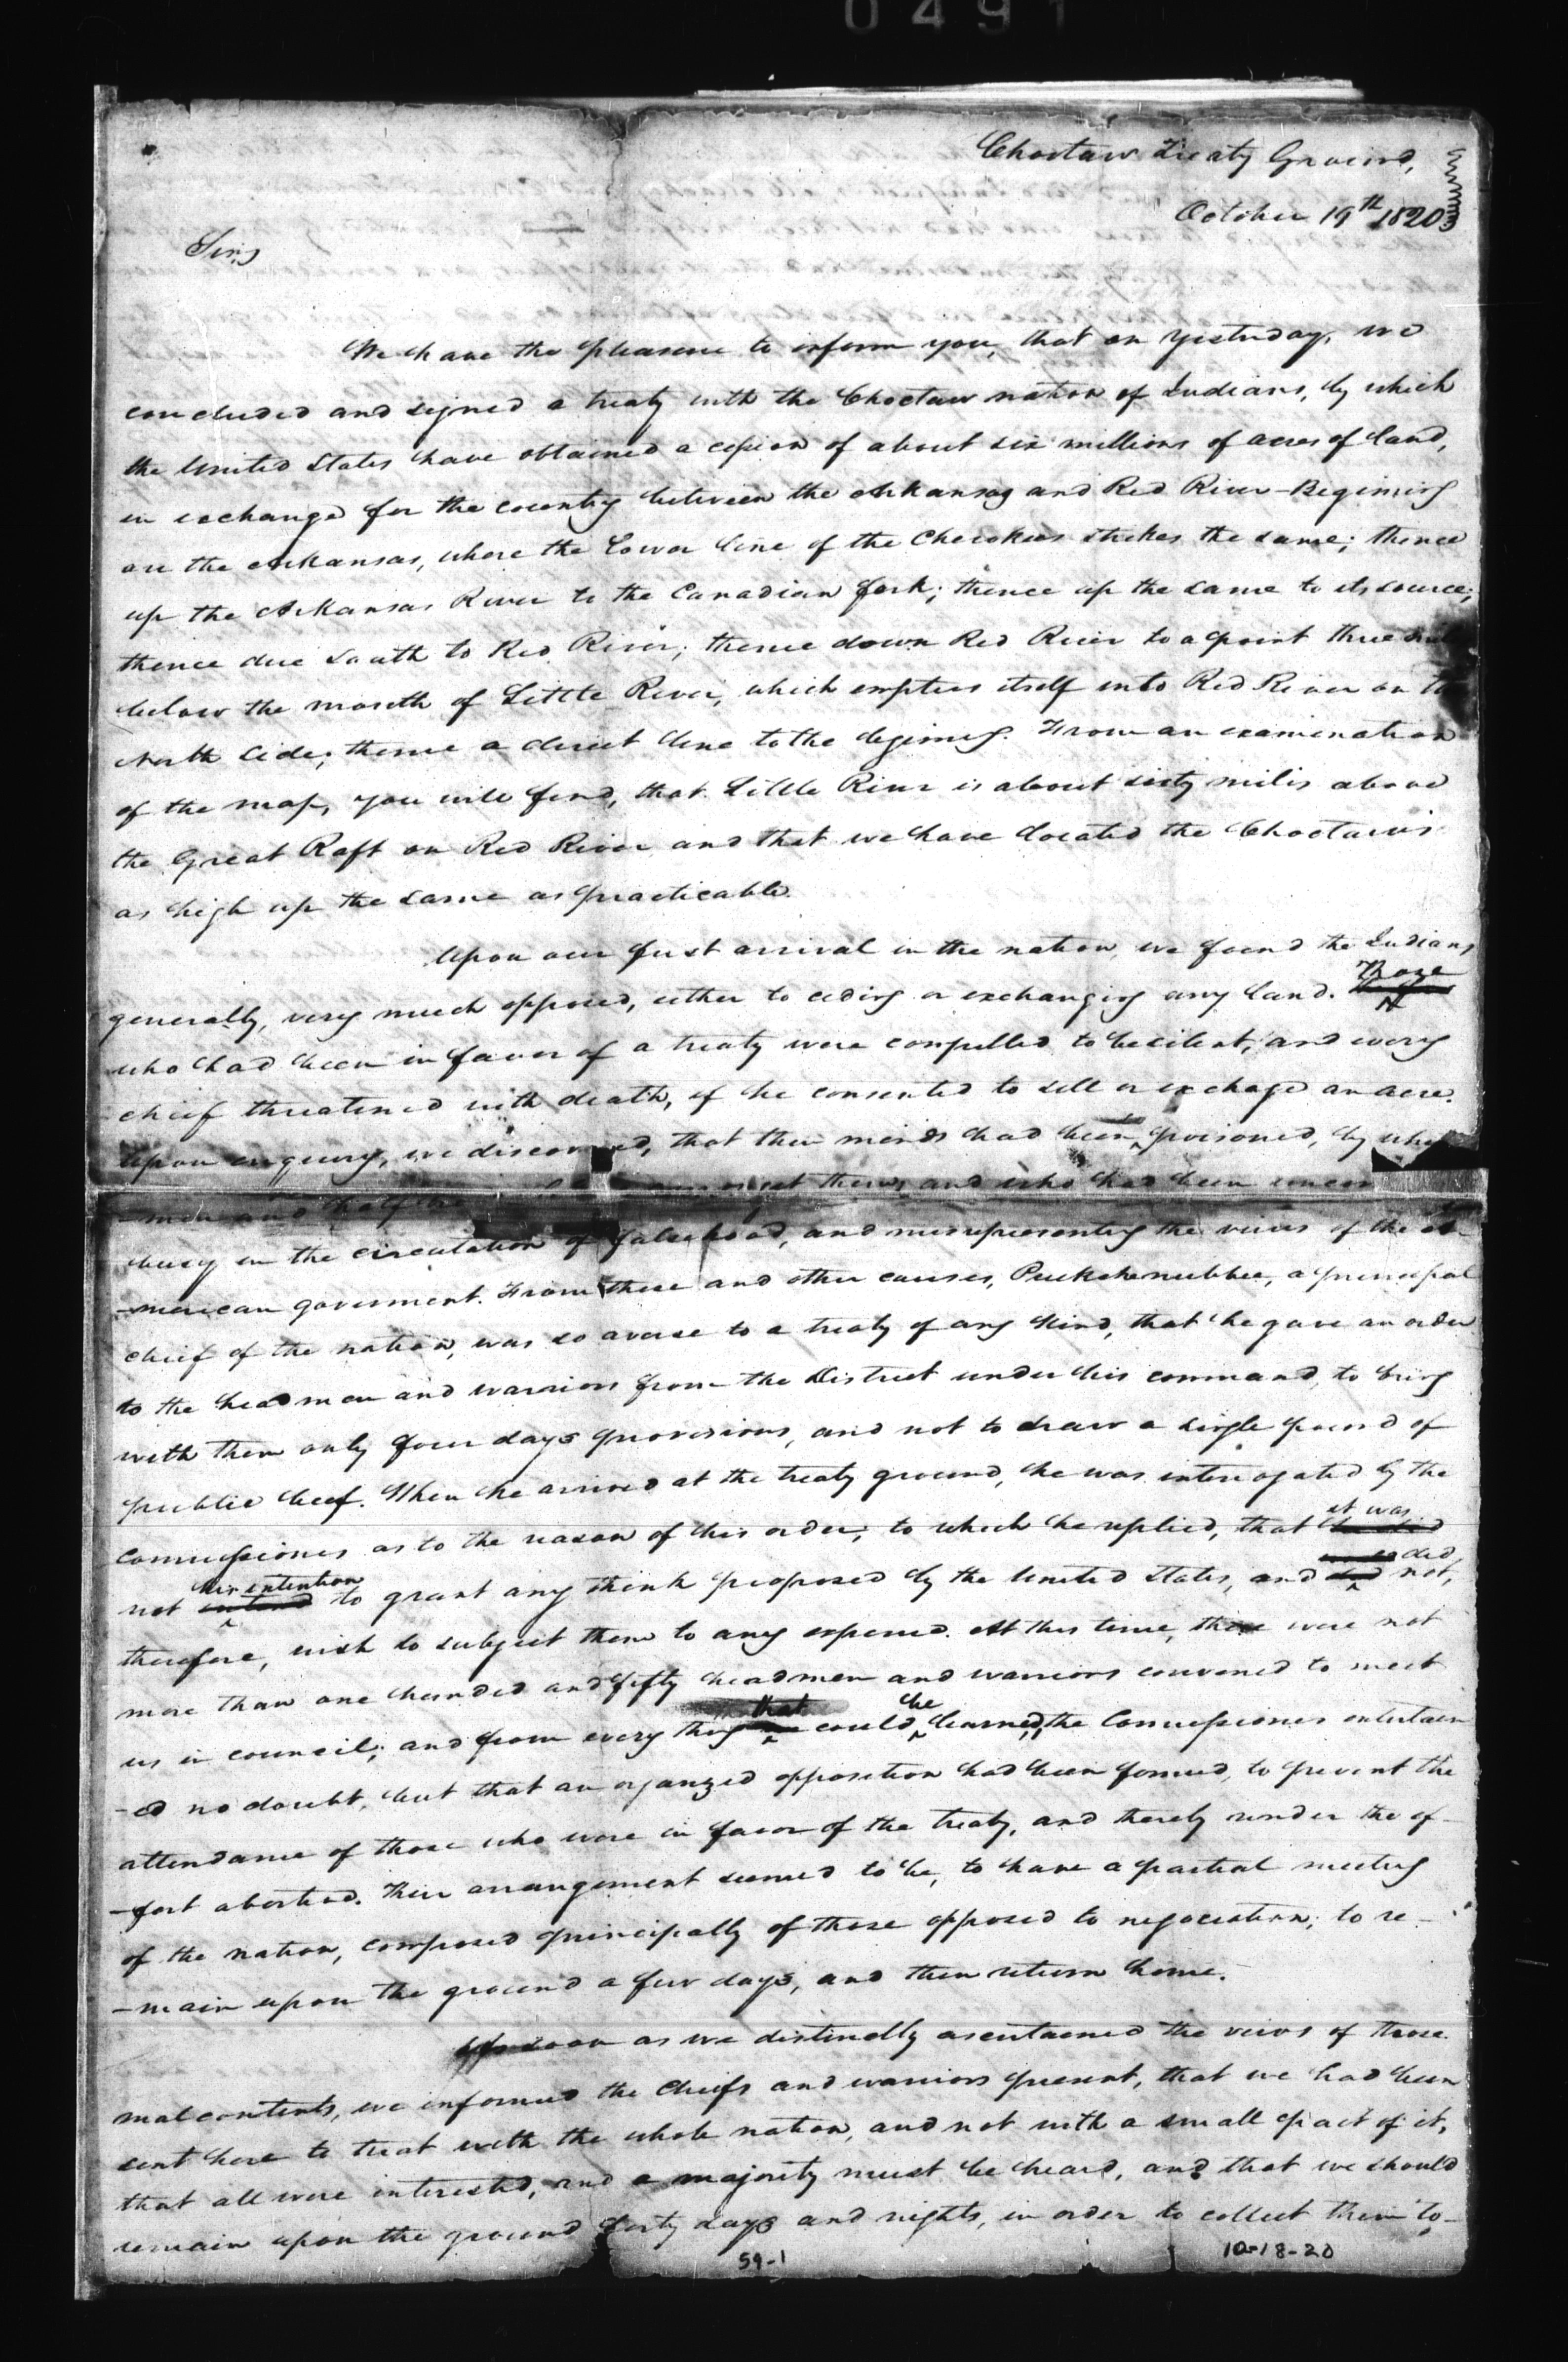 0491
Choctaw Treaty Ground,
October 19th 1820
Sir,
We have the pleasure to inform you, that on yesterday, we
concluded and signed a treaty with the Choctaw nation of Indians, by which
the United States have obtained a cession of about six millions of acres of land,
in exchange for the country between the Arkansas and Red River - Begining
on the Arkansas, where the Lower line of the Cherokees strikes the same; thence
up the Arkansas River to the Canadian fork; thence up the same to its source;
thence due South to Red River; thence down Red River to a point three
below the mouth of Little River, which empties itself into Red River on
North side; thence a direct line to the begining. From an examination
of the map, you will find, that Little River is about sixty miles above
the Great Raft on Red River and that we have located the Choctaws
as high up the same as practicable.
Upon our first arrival in the nation, we found the Indians
generally, very much opposed, either to ceding or exchanging any land. Those
who had been in favor of a treaty were compelled to be silent, and every
chief threatened with death, if he consented to sell or exchage an acre.
Upon enquiry, we discovered, that their minds had been poisoned, by
-men and half and who had been
busy in the circulation of falsehood, and misrepresenting the views of the A-
-merican goverment. From these and other causes, Puckshenubbee, a principal
chief of the nation, was so averse to a treaty of any kind, that he gave an order
to the headmen and warriors from the District under his command, to bring
with them only four days provisions, and not to draw a single pound of
public beef. When he arrived at the treaty ground, he was interogated by the
Commissioners as to the reason of his order; to which he replied, that it was
not his intention to grant any think proposed by the United States, and did not,
therefore, wish to subject them to any expence. At this time, there were not
more than one hundred and fifty headmen and warriors convened to meet
us in council; and from every thing that could be learned, the Commissioners entertain
-ed no doubt, but that an organized opposition had been formed, to prevent the
attendance of those who were in favor of the treaty, and thereby render the ef-
-fort abortive. Their arrangement seemed to be, to have a partial meeting
of the nation, composed principally of those opposed to negociation; to re-
-main upon the ground a few days, and then return home.
As soon as we distinctly ascertained the views of those
malcontents, we informed the Chiefs and warriors present, that we had been
sent here to treat with the whole nation, and not with a small part of it,
that all were interested, and a majority must be heard, and that we should
remain upon the ground forty days and nights, in order to collect them to-
59-1 10-18-20